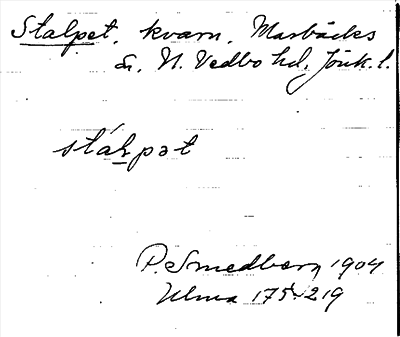 Stalpet, kvarn, Marbäcks
sn, N. Vedbo hd, Jönk. l.
stálpət
P. Smedberg 1904
Ulma 175:219